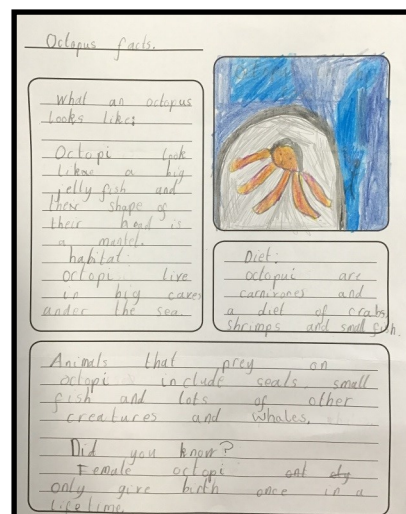 Octopus facts.
What an octopus
looks like:
Octopi look
like a big
jelly fish and
their shape of
their head is
a mantel.
habitat:
octopi live
in big caves
under the sea.
Diet:
octopui are
carnivores and
a diet of crabs,
shrimps and small fish.
Animals that prey on
octopi include seals, small
fish and lots of other
creatures and whales.
Did you know?
Female octopi
only give birth once in a
lifetime.